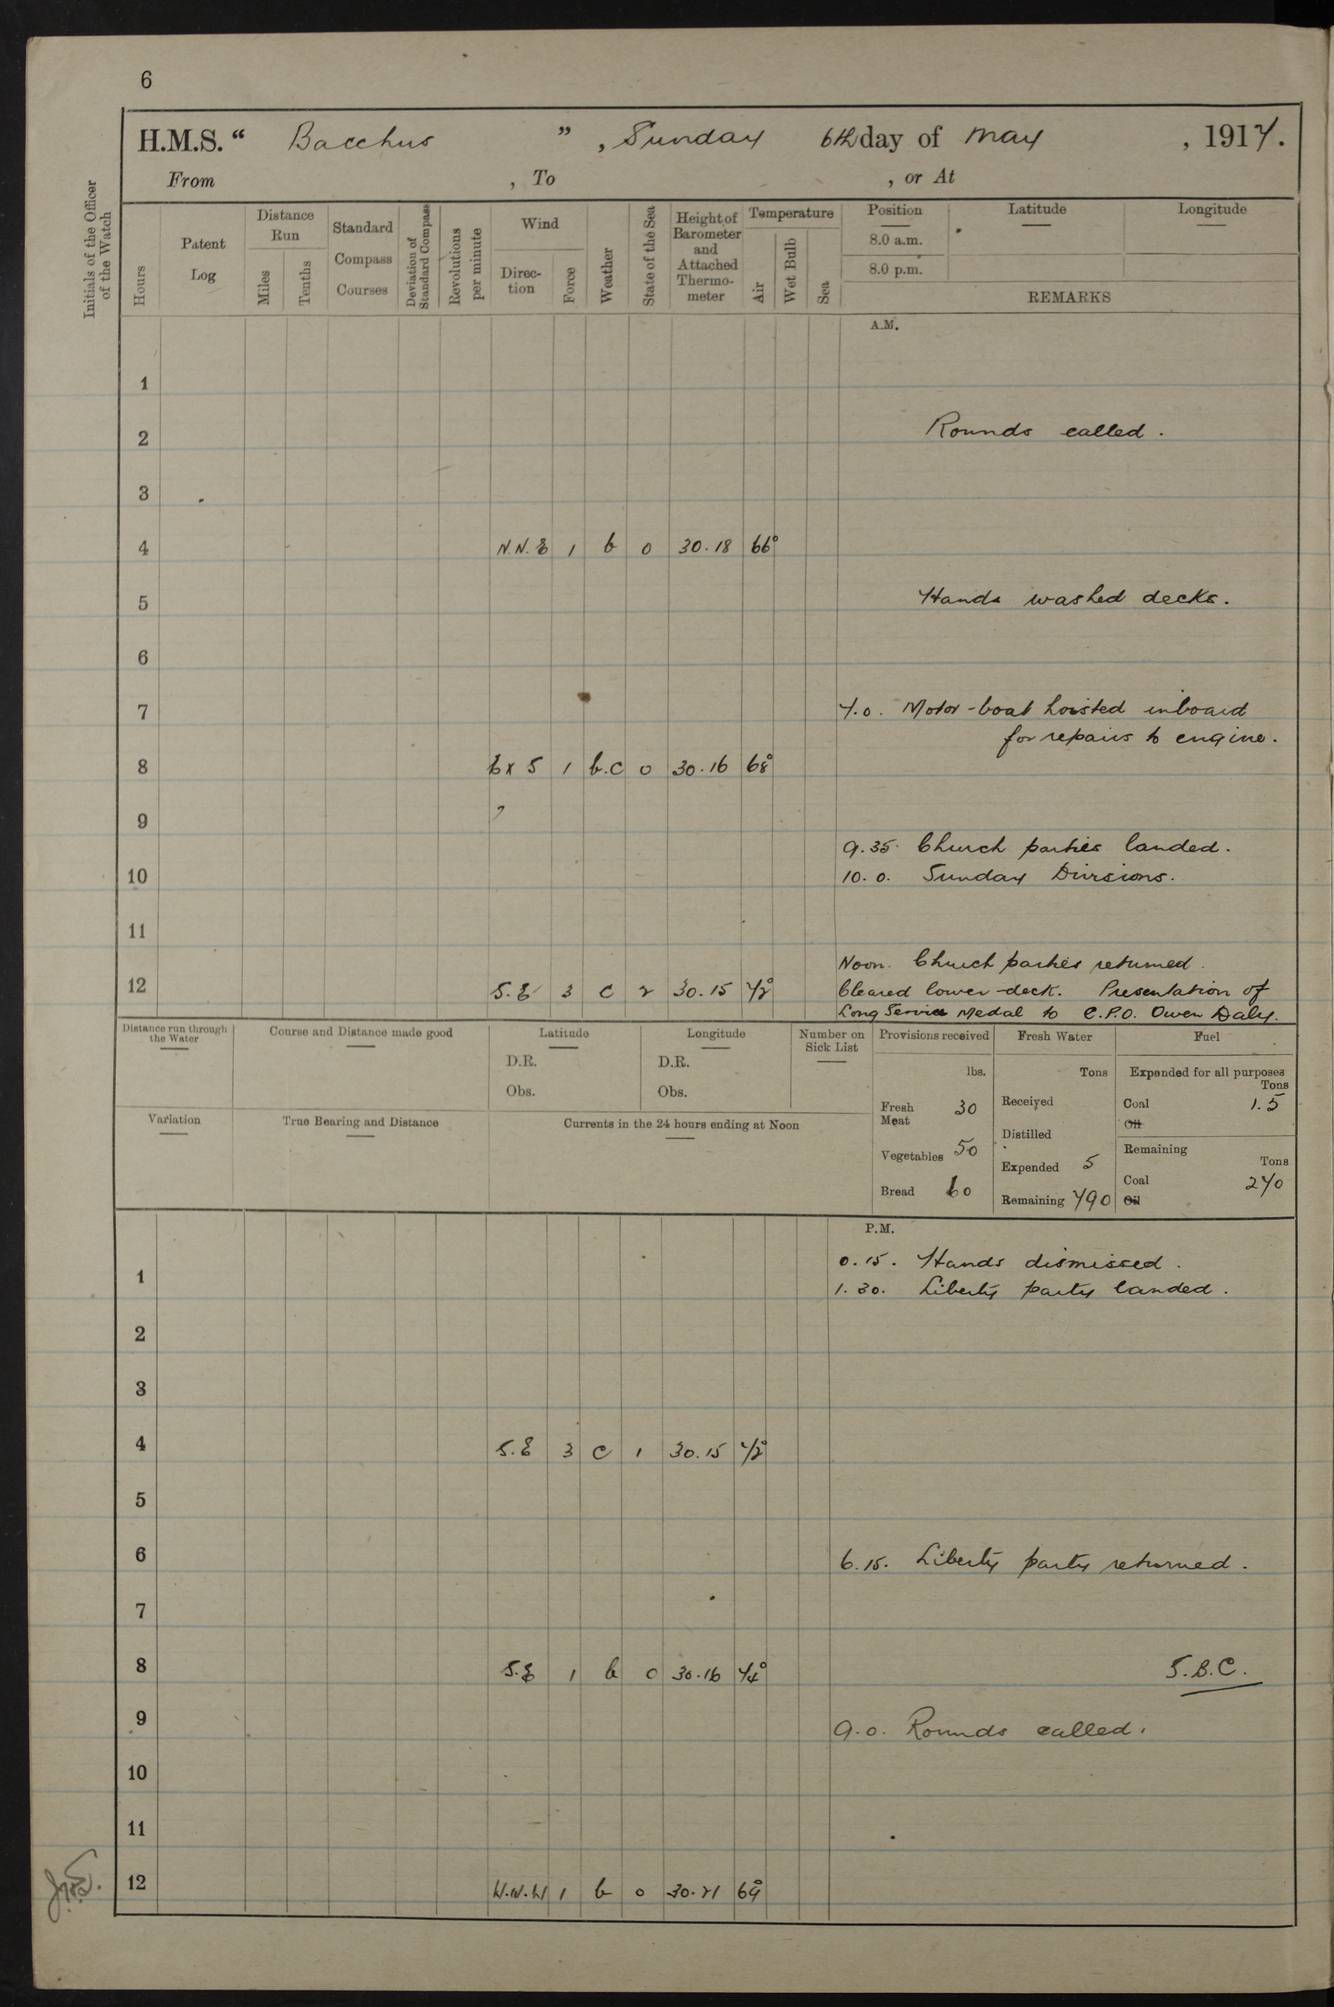 6
H.M.S. “ Bacchus ” , Sunday 6th day of May , 1917.
From , To , or At
Initials of the Officer of the Watch
Hours
Patent Log
Distance Run
Miles
Tenths
Standard Compass Courses
Deviation of Standard Compass
Revolutions per minute
Wind
Direc-tion
Force
Weather
State of the Sea
Height of Barometer and Attached Thermo-meter
Temperature
Air
Wet Bulb
Sea
Position
8.0 a.m.
8.0 p.m.
Latitude
Longitude
REMARKS
A.M.
1
2 Rounds called.
3
4 N.N.E 1 b 0 30.18 66°
5 Hands washed decks.
6
7 7.0. Motor-boat hoisted inboard
for repairs to engine.
8 E x S 1 b.c 0 30.16 68°
9
9.35. Church parties landed.
10 10.0. Sunday Divisions.
11
Noon. Church parties returned.
12 S.E 3 c 2 30.15 72° Cleared lower-deck. Presentation of
Long Service Medal to C.P.O. Owen Daly.
Distance run through the Water
Course and Distance made good
Latitude
D.R.
Obs.
Longitude
D.R.
Obs.
Number on Sick List
Provisions received
lbs.
Fresh Meat 30
Vegetables 50
Bread 60
Fresh Water
Tons
Received
Distilled
Expended 5
Remaining 790
Fuel
Expended for all purposes
Tons
Coal 1.5
Oil
Remaining
Tons
Coal 270
Oil
Variation
True Bearing and Distance
Currents in the 24 hours ending at Noon
P.M.
0.15. Hands dismissed.
1 1.30. Liberty party landed.
2
3
4 S.E 3 c 1 30.15 72°
5
6 6.15. Liberty party returned.
7
8 S.E 1 b 0 30.16 74° S.B.C.
9 9.0. Rounds called.
10
11
12 W.N.W 1 b 0 30.21 69°